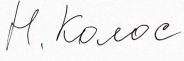 Н. Колос